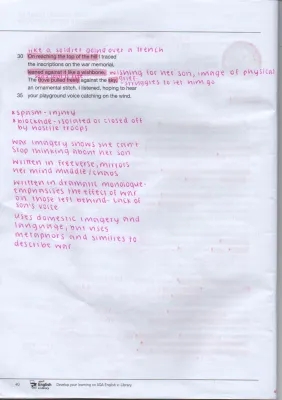 like a soldier going over a trench
30 On reaching the top of the hill I traced
the inscriptions on the war memorial,
leaned against it like a wishbone. wishing for her son, image of physical
The dove pulled freely against the sky, struggles to let him go
an ornamental stitch. I listened, hoping to hear
35 your playground voice catching on the wind.
*spasm - injury
*blockade - isolated or closed off
by hostile troops
war imagery shows she can't
stop thinking about her son
written in freeverse, mirrors
her mind muddle/chaos
written in dramatic monologue-
emphasises the effect of war
on those left behind. Lack of
son's voice
Uses domestic imagery and
language, but uses
metaphors and similies to
describe war
Develop your learning on AQA English in Library